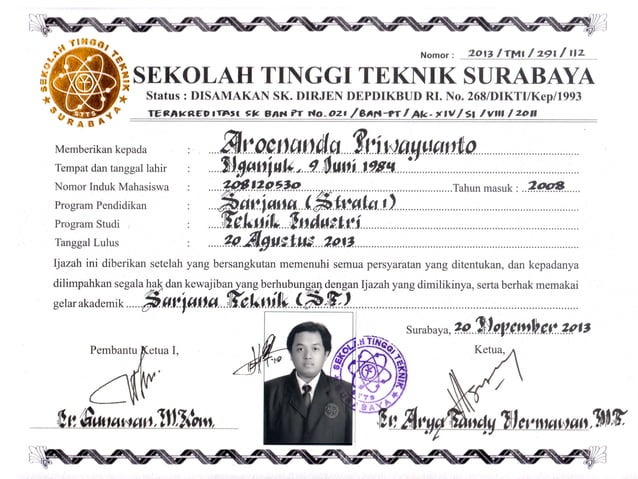 Nomor : 2013/TMI/291/112
SEKOLAH TINGGI TEKNIK SURABAYA
Status : DISAMAKAN SK. DIRJEN DEPDIKBUD RI. No. 268/DIKTI/Kep/1993
TERAKREDITASI SK BAN PT NO. 021 / BAN-PT / AK-XIV / S1 / VIII / 2011
Memberikan kepada : Aroenanda Priwayuanto
Tempat dan tanggal lahir : Nganjuk, 9 Juni 1984
Nomor Induk Mahasiswa : 208120530 Tahun masuk : 2008
Program Pendidikan : Sarjana (Strata 1)
Program Studi : Teknik Industri
Tanggal Lulus : 20 Agustus 2013
Ijazah ini diberikan setelah yang bersangkutan memenuhi semua persyaratan yang ditentukan, dan kepadanya
dilimpahkan segala hak dan kewajiban yang berhubungan dengan Ijazah yang dimilikinya, serta berhak memakai
gelar akademik : Sarjana Teknik (S.T)
Surabaya, 20 Nopember 2013
Pembantu Ketua I,
Ketua,
Ir. Gunawan, M.Kom.
Ir. Arya Tandy Hermawan, M.T.
SEKOLAH TINGGI TEKNIK
SURABAYA
STTS
SEKOLAH TINGGI TEKNIK
SURABAYA
STTS